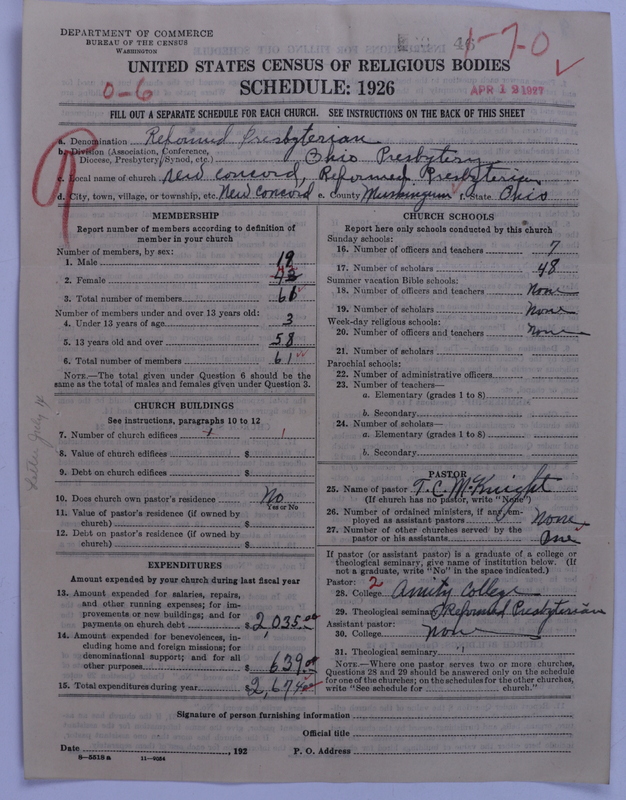 DEPARTMENT OF COMMERCE
BUREAU OF THE CENSUS
WASHINGTON
46
1-7-0
UNITED STATES CENSUS OF RELIGIOUS BODIES
0-6
SCHEDULE: 1926
APR 12 1927
FILL OUT A SEPARATE SCHEDULE FOR EACH CHURCH. SEE INSTRUCTIONS ON THE BACK OF THIS SHEET
9
a. Denomination Reformed Presbyterian
b. Division (Association, Conference, Diocese, Presbytery, Synod, etc.) Ohio Presbytery
c. Local name of church New Concord, Reformed Presbyterian
d. City, town, village, or township, etc. New Concord e. County Muskingum f. State Ohio
MEMBERSHIP
Report number of members according to definition of
member in your church
Number of members, by sex:
1. Male 19
2. Female
3. Total number of members 61
Number of members under and over 13 years old:
4. Under 13 years of age 3
5. 13 years old and over 58
6. Total number of members 61
NOTE.—The total given under Question 6 should be
same as the total of males and females given under Question 3.
CHURCH BUILDINGS
See instructions, paragraphs 10 to 12
7. Number of church edifices 1
8. Value of church edifices $
9. Debt on church edifices $
10. Does church own pastor's residence No
Yes or No
11. Value of pastor's residence (if owned by
church) $
12. Debt on pastor's residence (if owned by
church) $
EXPENDITURES
Amount expended by your church during last fiscal year
13. Amount expended for salaries, repairs,
and other running expenses; for im-
provements or new buildings; and for
payments on church debt $2,035.00
14. Amount expended for benevolences, in-
cluding home and foreign missions; for
denominational support; and for all
other purposes $639.00
15. Total expenditures during year $2,674.00
CHURCH SCHOOLS
Report here only schools conducted by this church
Sunday schools:
16. Number of officers and teachers 7
17. Number of scholars 48
Summer vacation Bible schools:
18. Number of officers and teachers None
19. Number of scholars None
Week-day religious schools:
20. Number of officers and teachers None
21. Number of scholars
Parochial schools:
22. Number of administrative officers
23. Number of teachers—
a. Elementary (grades 1 to 8)
b. Secondary
24. Number of scholars—
a. Elementary (grades 1 to 8)
b. Secondary
PASTOR
25. Name of pastor T. C. McKnight
(If church has no pastor, write "None")
26. Number of ordained ministers, if any, em-
ployed as assistant pastors None
27. Number of other churches served by the
pastor or his assistants One
If pastor (or assistant pastor) is a graduate of a college or
theological seminary, give name of institution below. (If
not a graduate, write "No" in the space indicated.)
Pastor: 2
28. College Amity College
29. Theological seminary Reformed Presbyterian
Assistant pastor:
30. College None
31. Theological seminary "
NOTE.—Where one pastor serves two or more churches,
Questions 28 and 29 should be answered only on the schedule
for one of the churches; on the schedules for the other churches,
write "See schedule for church."
Signature of person furnishing information
Official title
Date , 192 P. O. Address
8—5518 a 11—9054